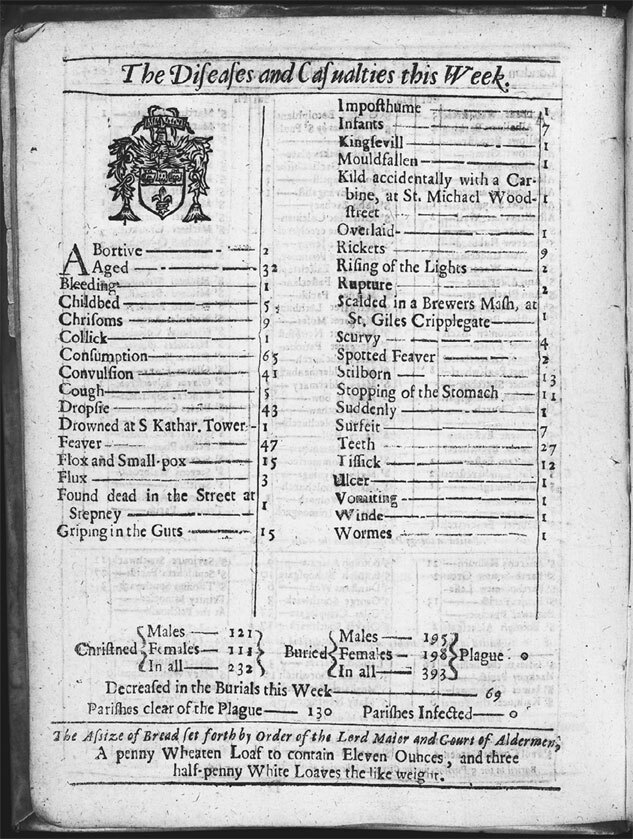 The Diſeaſes and Caſualties this Week.
Abortive 2
Aged 32
Bleeding 1
Childbed 5
Chriſoms 9
Collick 1
Conſumption 65
Convulſion 41
Cough 5
Dropſie 43
Drowned at S Kathar. Tower 1
Feaver 47
Flox and Small-pox 15
Flux 3
Found dead in the Street at
Stepney 1
Griping in the Guts 15
Impoſthume 1
Infants 7
Kingſevill 1
Mouldfallen 1
Kild accidentally with a Car-
bine, at St. Michael Wood-
ſtreet 1
Overlaid 1
Rickets 9
Riſing of the Lights 2
Rupture 2
Scalded in a Brewers Maſh, at
St. Giles Cripplegate 1
Scurvy 4
Spotted Feaver 2
Stilborn 13
Stopping of the Stomach 11
Suddenly 1
Surfeit 7
Teeth 27
Tiſſick 12
Ulcer 1
Vomiting 1
Winde 1
Wormes 1
Chriſtned
Males 121
Females 111
In all 232
Buried
Males 195
Females 198
In all 393
Plague 0
Decreaſed in the Burials this Week 69
Pariſhes clear of the Plague 130 Pariſhes Infected 0
The Aſsize of Bread ſet forth by Order of the Lord Maior and Court of Aldermen,
A penny Wheaten Loaf to contain Eleven Ounces, and three
half-penny White Loaves the like weight.